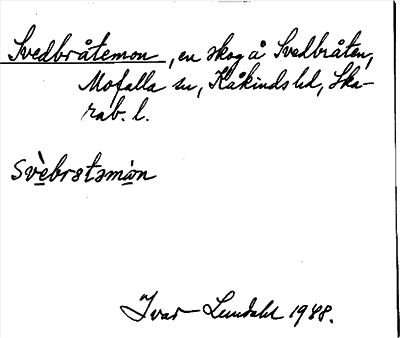 Svedbråtemon, en skog å Svedbråten,
Mofalla sn, Kåkinds hd, Ska-
rab. l.
svèbrɵtəmòn
Ivar Lundahl 1988.